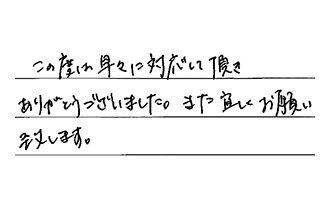 この度は早々に対応して頂き
ありがとうございました。また宜しくお願い
致します。